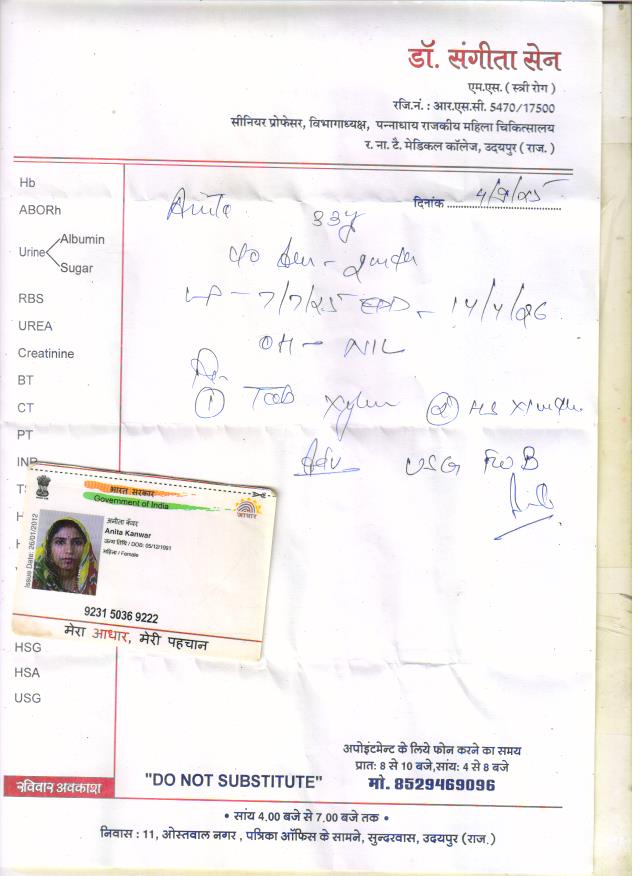 डॉ. संगीता सेन
एम.एस. ( स्त्री रोग )
रजि.नं. : आर.एस.सी. 5470/17500
सीनियर प्रोफेसर, विभागाध्यक्ष, पन्नाधाय राजकीय महिला चिकित्सालय
र. ना. टै. मेडिकल कॉलेज, उदयपुर ( राज. )
दिनांक 4/9/25
Anita 33y
LMP - 7/7/25 EDD - 14/4/26
OH - NIL
① Tab ②
Adv USG FWB
Hb
ABORh
Urine Albumin
Sugar
RBS
UREA
Creatinine
BT
CT
PT
HSG
HSA
USG
रविवार अवकाश
भारत सरकार
Government of India
आधार
Issue Date: 26/01/2012
अनीता कँवर
Anita Kanwar
जन्म तिथि / DOB: 05/12/1991
महिला / Female
9231 5036 9222
मेरा आधार, मेरी पहचान
अपोइंटमेन्ट के लिये फोन करने का समय
प्रात: 8 से 10 बजे,सांय: 4 से 8 बजे
"DO NOT SUBSTITUTE" मो. 8529469096
• सांय 4.00 बजे से 7.00 बजे तक •
निवास : 11, ओस्तवाल नगर , पत्रिका ऑफिस के सामने, सुन्दरवास, उदयपुर (राज.)